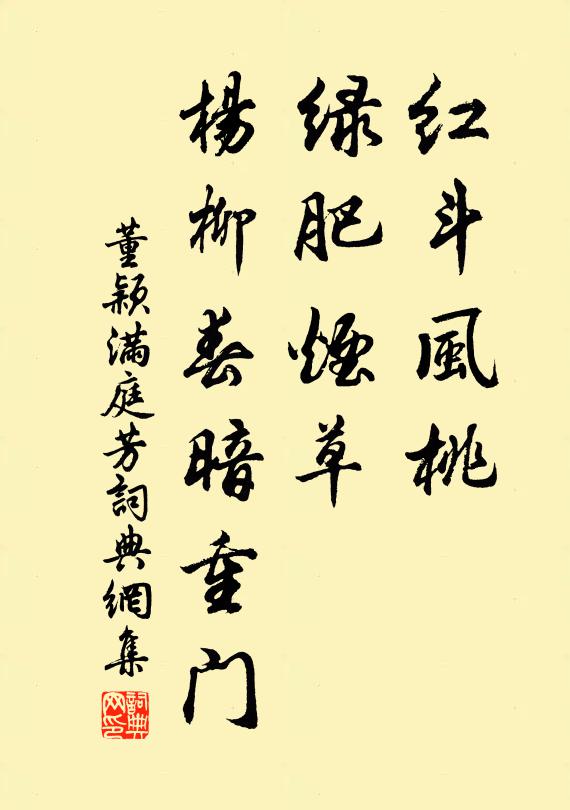 红斗風桃
緑肥煙草
楊柳春暗重门
董颖满庭芳詞典網集
詞典网印